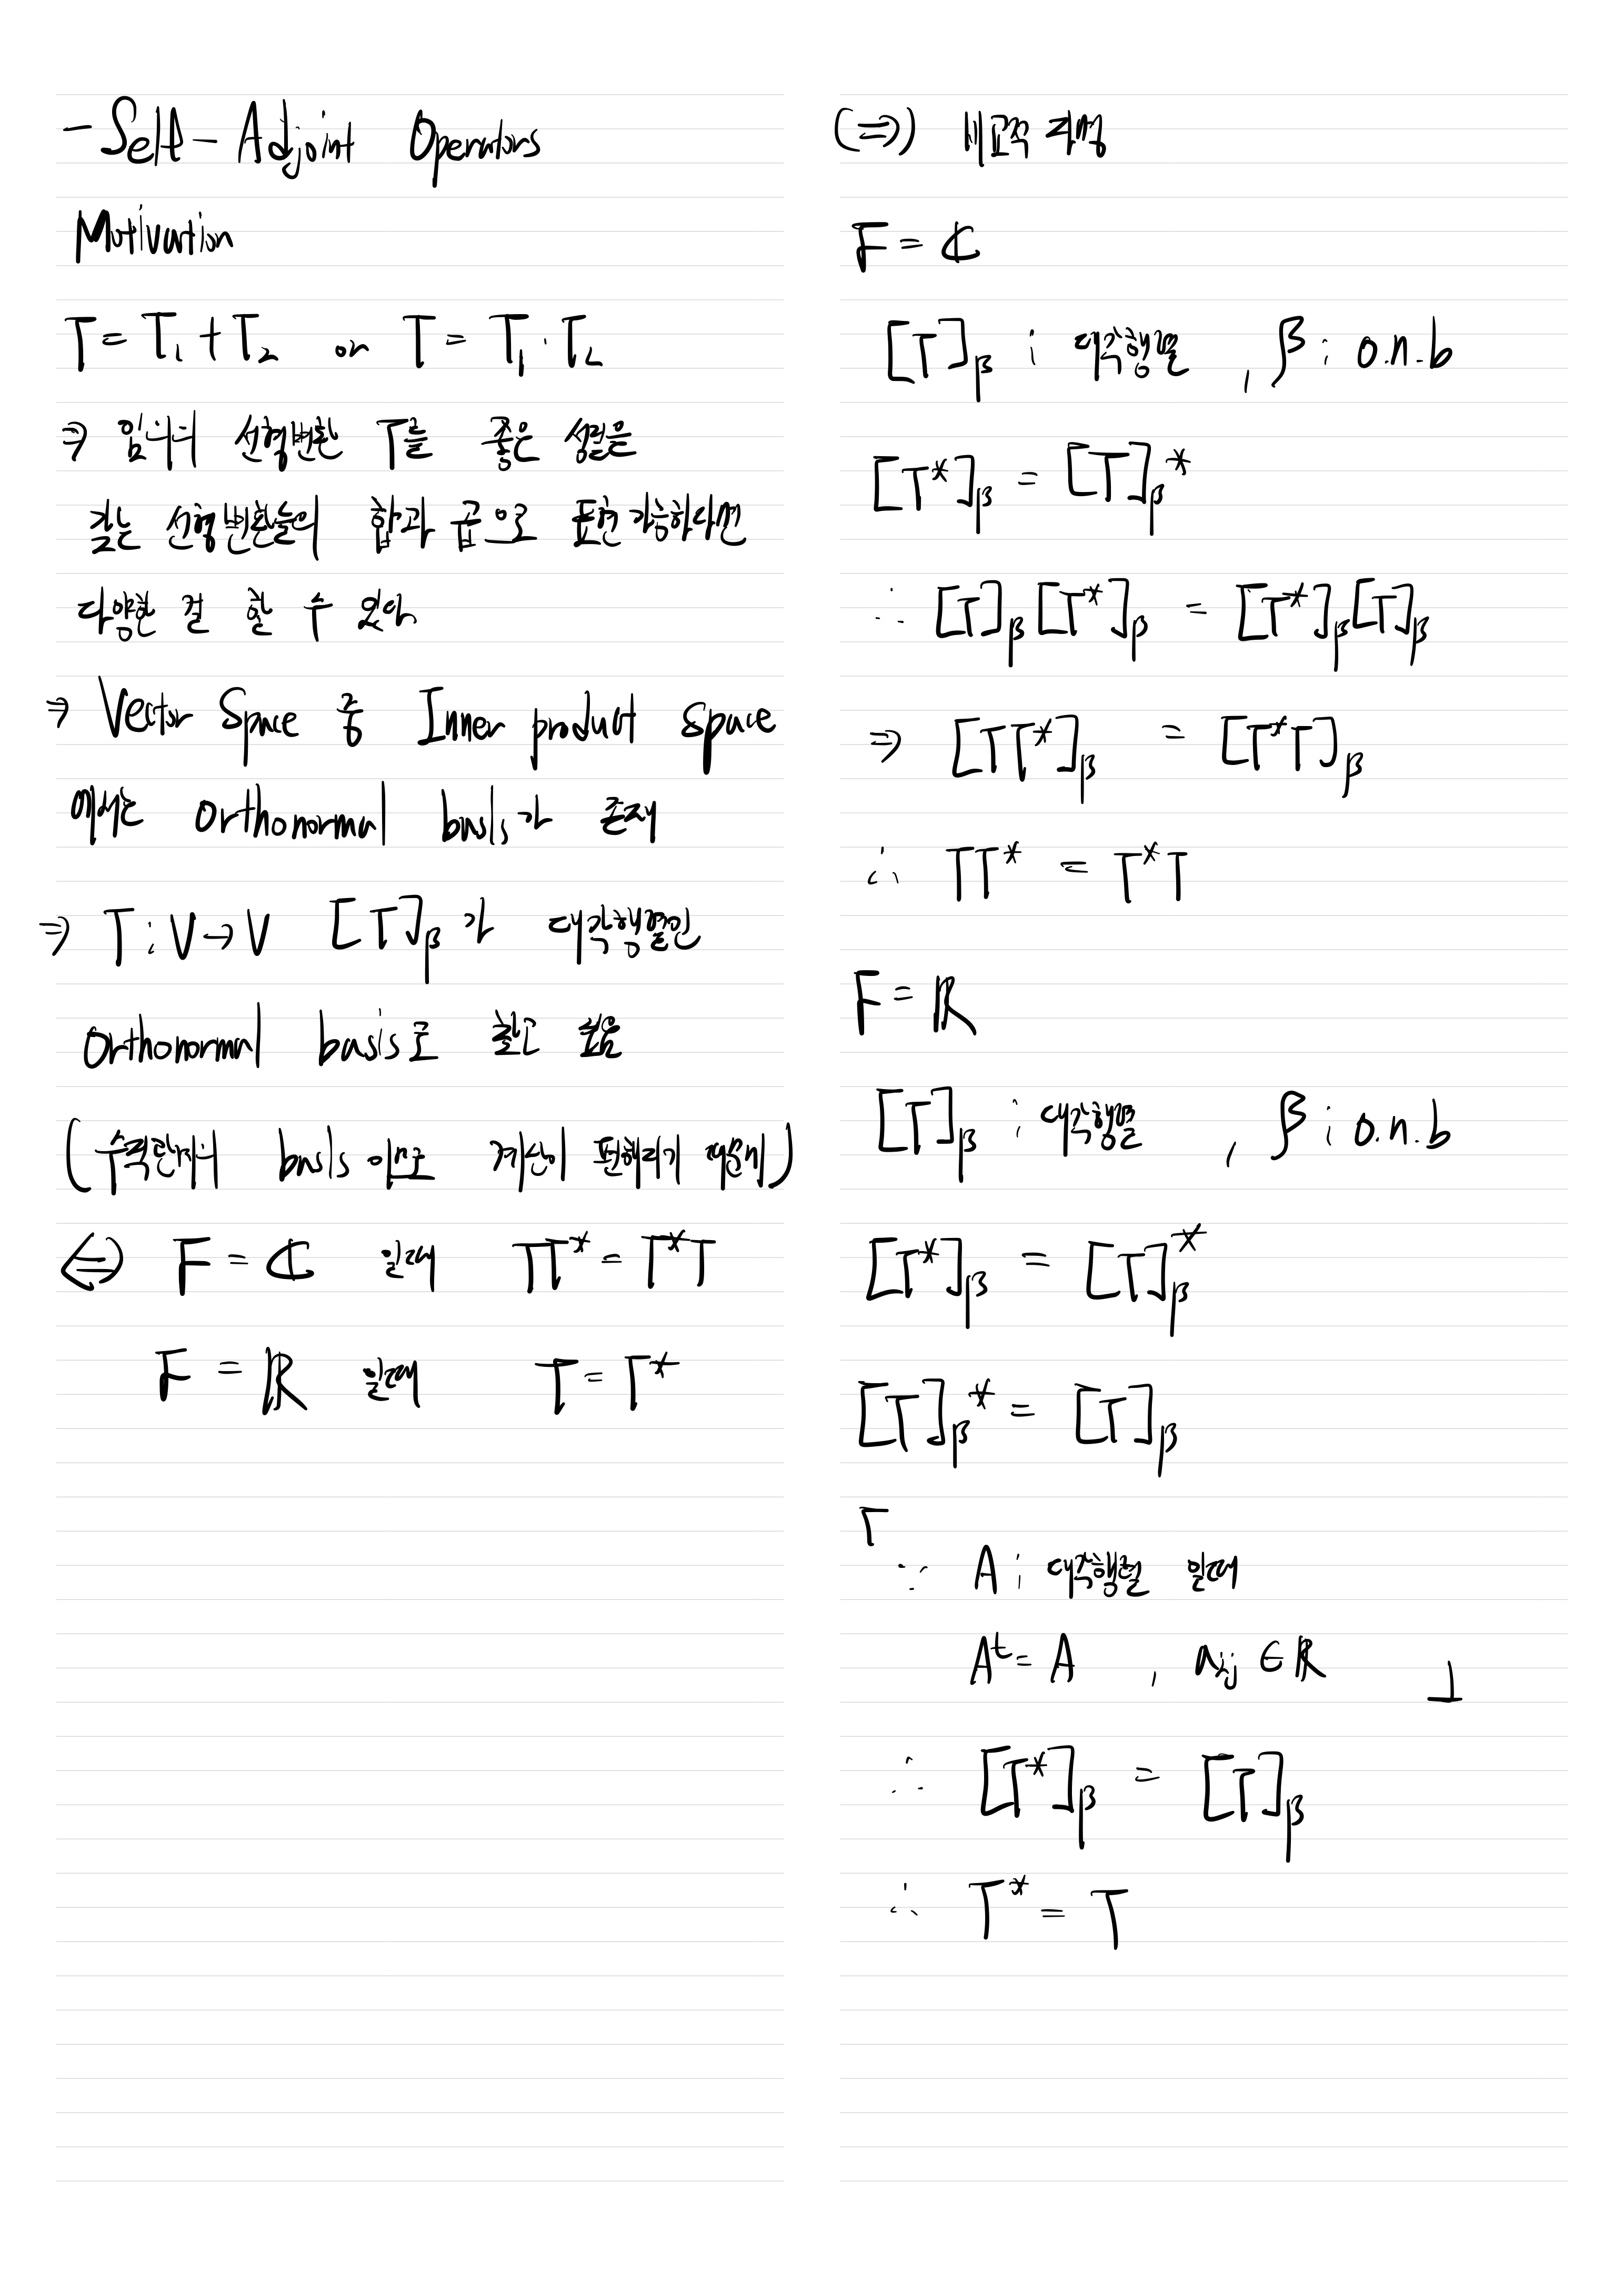 - Self - Adjoint Operators
Motivation
T = T₁ + T₂ or T = T₁ · T₂
⇒ 임의의 선형변환 T를 좋은 성질을
갖는 선형변환들의 합과 곱으로 표현 가능하다면
다양한 걸 할 수 있다
⇒ Vector Space 중 Inner product space
에서는 orthonormal basis가 존재
⇒ T : V → V [T]_β가 대각행렬인
Orthonormal basis로 잡고 싶음
( basis 이므로 계산이 편해지기 때문에)
(⇔) F = ℂ 일때 TT* = T*T
F = ℝ 일때 T = T*
(⇒)
F = ℂ
[T]_β : 대각행렬 , β : o.n.b
[T*]_β = [T]_β*
∴ [T]_β [T*]_β = [T*]_β [T]_β
⇒ [TT*]_β = [T*T]_β
∴ TT* = T*T
F = ℝ
[T]_β : 대각행렬 , β : o.n.b
[T*]_β = [T]_β*
[T]_β* = [T]_β
「
∵ A : 대각행렬 일때
Aᵗ = A , a_ij ∈ ℝ 」
∴ [T*]_β = [T]_β
∴ T* = T